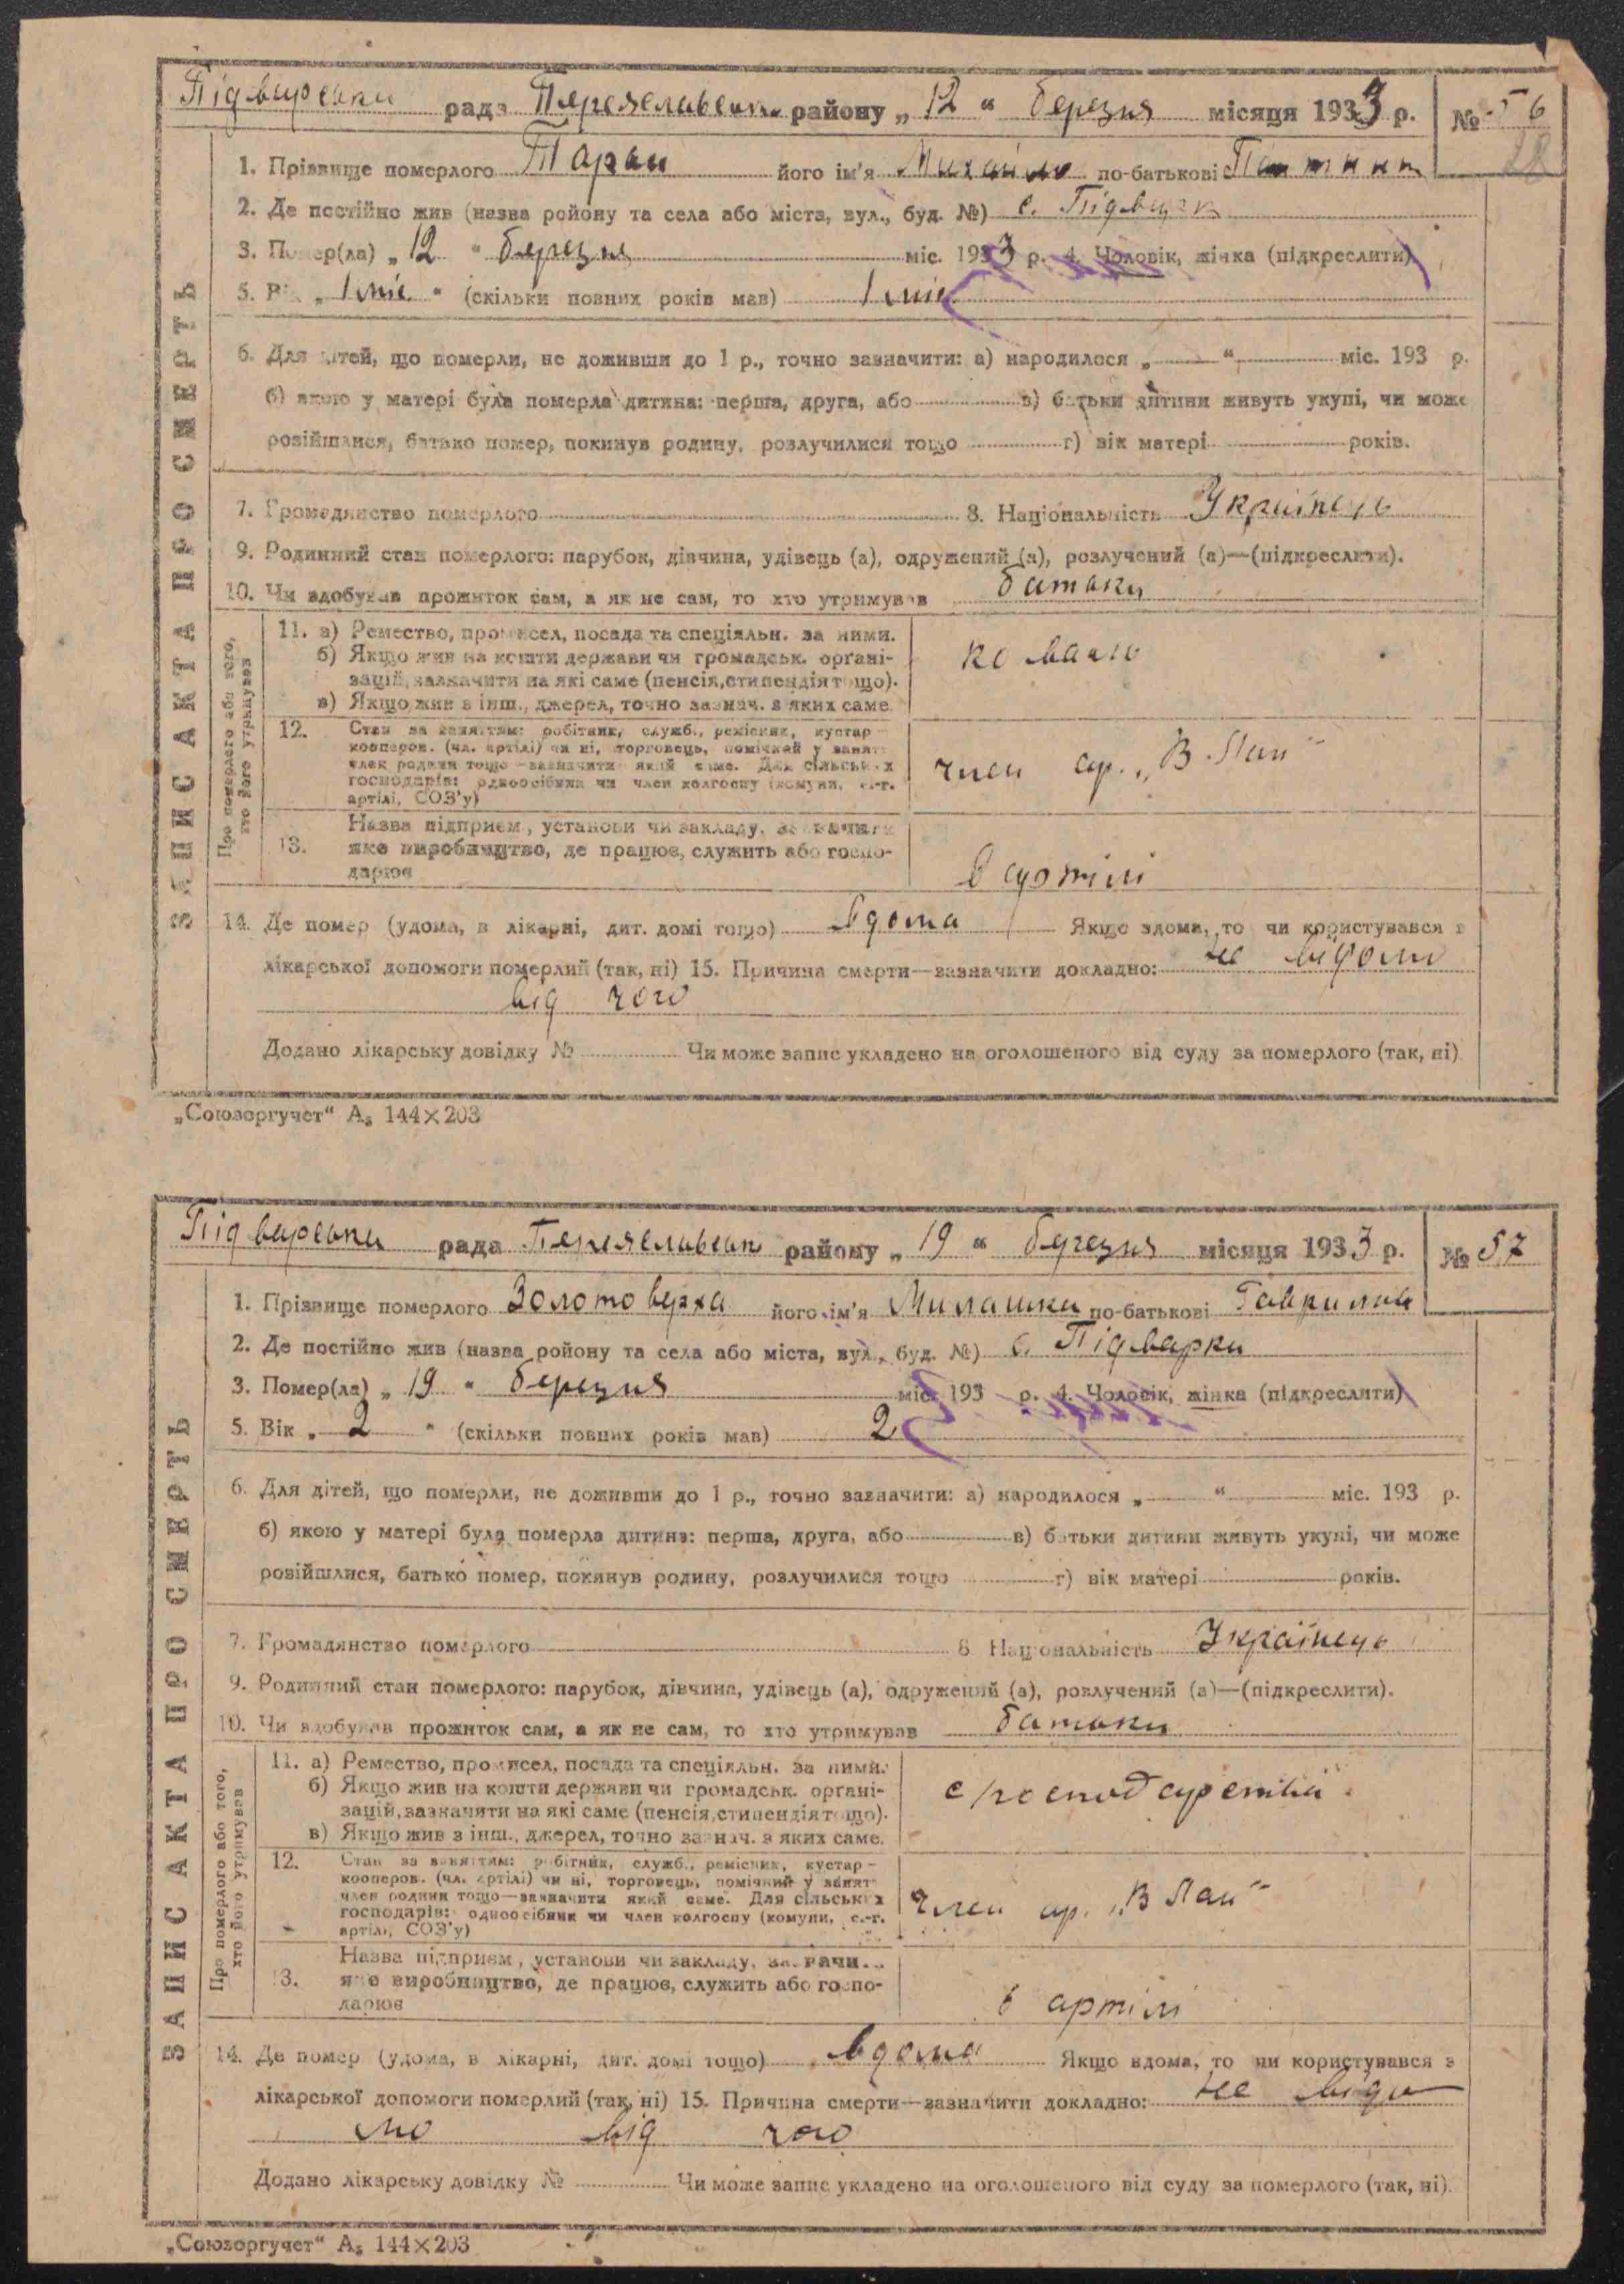 Підварська рада Переяславськ району „ 12 “ березня місяця 1933 р. № 56
28
1. Прізвище померлого Таран його ім'я Михайло по-батькові
2. Де постійно жив (назва ройону та села або міста, вул., буд. №) с. Підварки
3. Помер(ла) „ 12 “ березня міс. 1933 р. 4. Чоловік, жінка (підкреслити)
5. Вік „ 1 міс “ (скільки повних років мав) 1 міс
6. Для дітей, що померли, не доживши до 1 р., точно зазначити: а) народилося „ “ міс. 193 р.
б) якою у матері була померла дитина: перша, друга, або в) батьки дитини живуть укупі, чи може
розійшлися, батько помер, покинув родину, розлучилися тощо г) вік матері років.
7. Громадянство померлого 8. Національність Українець
9. Родинний стан померлого: парубок, дівчина, удівець (а), одружений (а), розлучений (а)—(підкреслити).
10. Чи здобував прожиток сам, а як не сам, то хто утримував батьки
ЗАПИС АКТА ПРО СМЕРТЬ
Про померлого або того, хто його утримував
11. а) Ремество, промисел, посада та спеціяльн. за ними.
б) Якщо жив на кошти держави чи громадськ. органі-
зацій, зазначити на які саме (пенсія, стипендія тощо).
в) Якщо жив з інш., джерел, точно зазнач. з яких саме.
коваль
12. Стан за заняттям: робітник, служб., ремісник, кустар-
кооперов. (чл. артілі) чи ні, торговець, помічний у занят
член родини тощо—зазначити який саме. Для сільських
господарів: одноосібник чи член колгоспу (комуни, с.-г.
артілі, СОЗ'у)
член ар. „В Лан“
13. Назва підприєм., установи чи закладу, зазначити
яке виробництво, де працює, служить або госпо-
дарює
в артілі
14. Де помер (удома, в лікарні, дит. домі тощо) вдома Якщо вдома, то чи користувався з
лікарської допомоги померлий (так, ні) 15. Причина смерти—зазначити докладно: не відомо
від чого
Додано лікарську довідку № Чи може запис укладено на оголошеного від суду за померлого (так, ні)
„Союзоргучет“ А₅ 144×203
Підварська рада Переяславськ району „ 19 “ березня місяця 1933 р. № 57
1. Прізвище померлого Золотоверха його ім'я Милашка по-батькові Гаврилив
2. Де постійно жив (назва ройону та села або міста, вул., буд. №) с. Підварки
3. Помер(ла) „ 19 “ березня міс. 193 р. 4. Чоловік, жінка (підкреслити)
5. Вік „ 2 “ (скільки повних років мав) 2
6. Для дітей, що померли, не доживши до 1 р., точно зазначити: а) народилося „ “ міс. 193 р.
б) якою у матері була померла дитина: перша, друга, або в) батьки дитини живуть укупі, чи може
розійшлися, батько помер, покинув родину, розлучилися тощо г) вік матері років.
7. Громадянство померлого 8 Національність Українець
9. Родинний стан померлого: парубок, дівчина, удівець (а), одружений (а), розлучений (а)—(підкреслити).
10. Чи здобував прожиток сам, а як не сам, то хто утримував батьки
ЗАПИС АКТА ПРО СМЕРТЬ
Про померлого або того, хто його утримував
11. а) Ремество, промисел, посада та спеціяльн. за ними.
б) Якщо жив на кошти держави чи громадськ. органі-
зацій, зазначити на які саме (пенсія, стипендія тощо).
в) Якщо жив з інш., джерел, точно зазнач. з яких саме.
12. Стан за заняттям: робітник, служб., ремісник, кустар-
кооперов. (чл. артілі) чи ні, торговець, помічний у занят
член родини тощо—зазначити який саме. Для сільських
господарів: одноосібник чи член колгоспу (комуни, с.-г.
артілі, СОЗ'у)
член ар. „В Лан“
13. Назва підприєм., установи чи закладу, зазначи
яке виробництво, де працює, служить або госпо-
дарює
в артілі
14. Де помер (удома, в лікарні, дит. домі тощо) вдома Якщо вдома, то чи користувався з
лікарської допомоги померлий (так, ні) 15. Причина смерти—зазначити докладно: не відо
мо від чого
Додано лікарську довідку № Чи може запис укладено на оголошеного від суду за померлого (так, ні).
„Союзоргучет“ А₅ 144×203